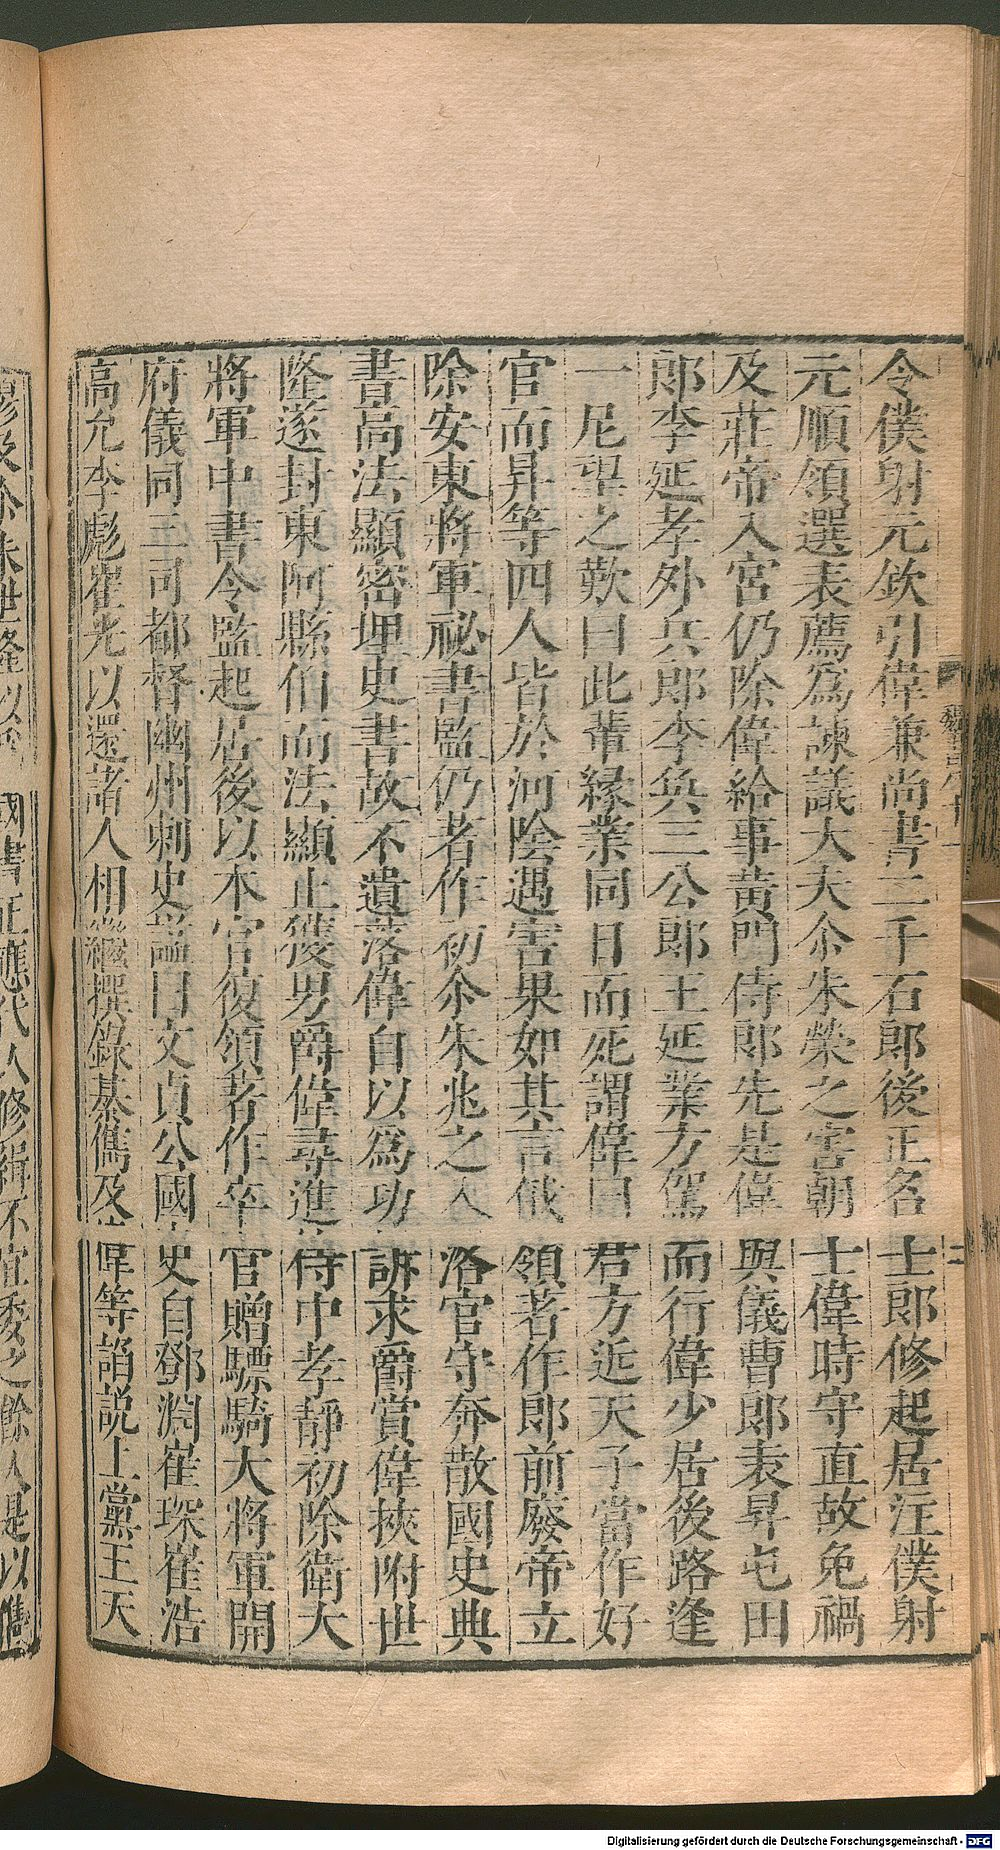 令僕射元欽引偉兼尚書二千石郎後正名士郎修起居注僕射
元順領選表薦爲諫議大夫尒朱榮之害朝士偉時守直故免禍
及莊帝入宮仍除偉給事黃門侍郎先是偉與儀曹郎袁昇屯田
郎李延孝外兵郎李奐三公郎王延業方駕而行偉少居後路逢
一尼望之歎曰此輩緣業同日而死謂偉曰君方近天子當作好
官而昇等四人皆於河陰遇害果如其言俄領著作郎前廢帝立
除安東將軍祕書監仍著作初尒朱兆之入洛官守奔散國史典
書高法顯密埋史書故不遺落偉自以爲功訴求爵賞偉挾附世
隆遂封東阿縣伯而法顯止獲男爵偉尋進侍中孝靜初除衛大
將軍中書令監起居後以本官復領著作卒官贈驃騎大將軍開
府儀同三司都督幽州刺史謚曰文貞公國史自鄧淵崔琛崔浩
高允李彪崔光以還諸人相繼撰錄綦儁及偉等諂説上黨王天
國書正應代人修緝不宜委之餘人是以儁
二
Digitalisierung gefördert durch die Deutsche Forschungsgemeinschaft - DFG